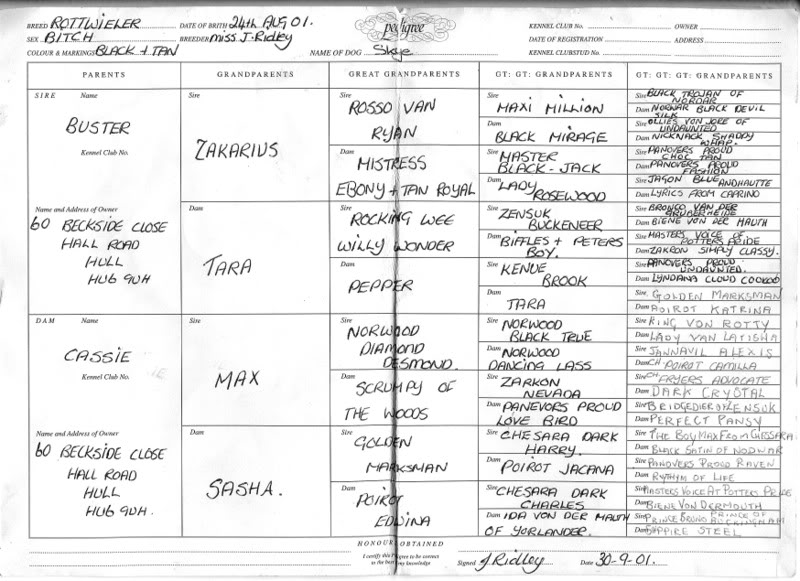 BREED ROTTWIELER DATE OF BIRTH 24th AUG 01. pedigree KENNEL CLUB No. OWNER
SEX BITCH BREEDER MISS J. RIDLEY DATE OF REGISTRATION ADDRESS
COLOUR & MARKINGS BLACK + TAN NAME OF DOG Skye KENNEL CLUBSTUD No.
PARENTS GRANDPARENTS GREAT GRANDPARENTS GT: GT: GRANDPARENTS GT: GT: GT: GRANDPARENTS
SIRE Name
BUSTER
Kennel Club No.
Name and Address of Owner
60 BECKSIDE CLOSE
HALL ROAD
HULL
HU6 9UH
DAM Name
CASSIE
Kennel Club No.
Name and Address of Owner
60 BECKSIDE CLOSE
HALL ROAD
HULL
HU6 9UH.
Sire
ZAKARIUS
Dam
TARA
Sire
MAX
Dam
SASHA.
Sire
ROSSO VAN
RYAN
Dam
MISTRESS
EBONY + TAN ROYAL
Sire
ROCKING WEE
WILLY WONDER
Dam
PEPPER
Sire
NORWOOD
DIAMOND
DESMOND.
Dam
SCRUMPY OF
THE WOODS
Sire
GOLDEN
MARKSMAN
Dam
POIROT
EDWINA
Sire
MAXI MILLION
Dam
BLACK MIRAGE
Sire
MASTER
BLACK-JACK
Dam
LADY
ROSEWOOD
Sire
ZENSUK
BUCKENEER
Dam
BIFFLES + PETERS
BOY.
Sire
KENUE
BROOK
Dam
TARA
Sire
NORWOOD
BLACK TRUE
Dam
NORWOOD
DANCING LASS
Sire
ZARKON
NEVADA
Dam
PANEVORS PROUD
LOVE BIRD
Sire
CHESARA DARK
HARRY.
Dam
POIROT JACANA
Sire
CHESARA DARK
CHARLES
Dam
IDA VON DER MAUTH
OF YORLANDER.
Sire BLACK TROJAN OF
NORDAR
Dam NORWAR BLACK DEVIL
SILK
Sire OLLIES VON JORE OF
UNDAUNTED
Dam NICKNACK SHADDY
WHAP.
Sire PANOVERS PROUD
CHOC TAN
Dam PANOVERS PROUD
FASHION
Sire JASON BLUE
ANDHAUTTE
Dam LYRICS FROM CAPRINO
Sire BRONCO VAN DER
GRUBERHEIDE
Dam BIENE VON DER MAUTH
Sire MASTERS VOICE OF
POTTERS PRIDE
Dam ZAKRON SIMPLY CLASSY.
Sire PANOVERS PROUD
UNDAUNTED.
Dam LYNDANA CLOUD COOKOO
Sire GOLDEN MARKSMAN
Dam POIROT KATRINA
Sire KING VON ROTTY
Dam LADY VAN LATISHA
Sire JANNAVIL ALEXIS
Dam CH POIROT CAMILLA
Sire CH FRYERS ADVOCATE
Dam DARK CRYSTAL
Sire BRIDGEDIER OF ZENSUK
Dam PERFECT PANSY
Sire THE BOY MAX FROM CHESSARA
Dam BLACK SATIN OF NODWAR
Sire PANOVERS PROUD RAVEN
Dam RYTHYM OF LIFE
Sire MASTERS VOICE AT POTTERS PRIDE
Dam BIENE VON DERMOUTH
Sire PRINCE BRUNO PRINCE OF
BUCKINGHAM
Dam SAPPIRE STEEL
HONOURS OBTAINED
I certify this Pedigree to be correct
to the best of my knowledge
Signed J Ridley Date 30-9-01.